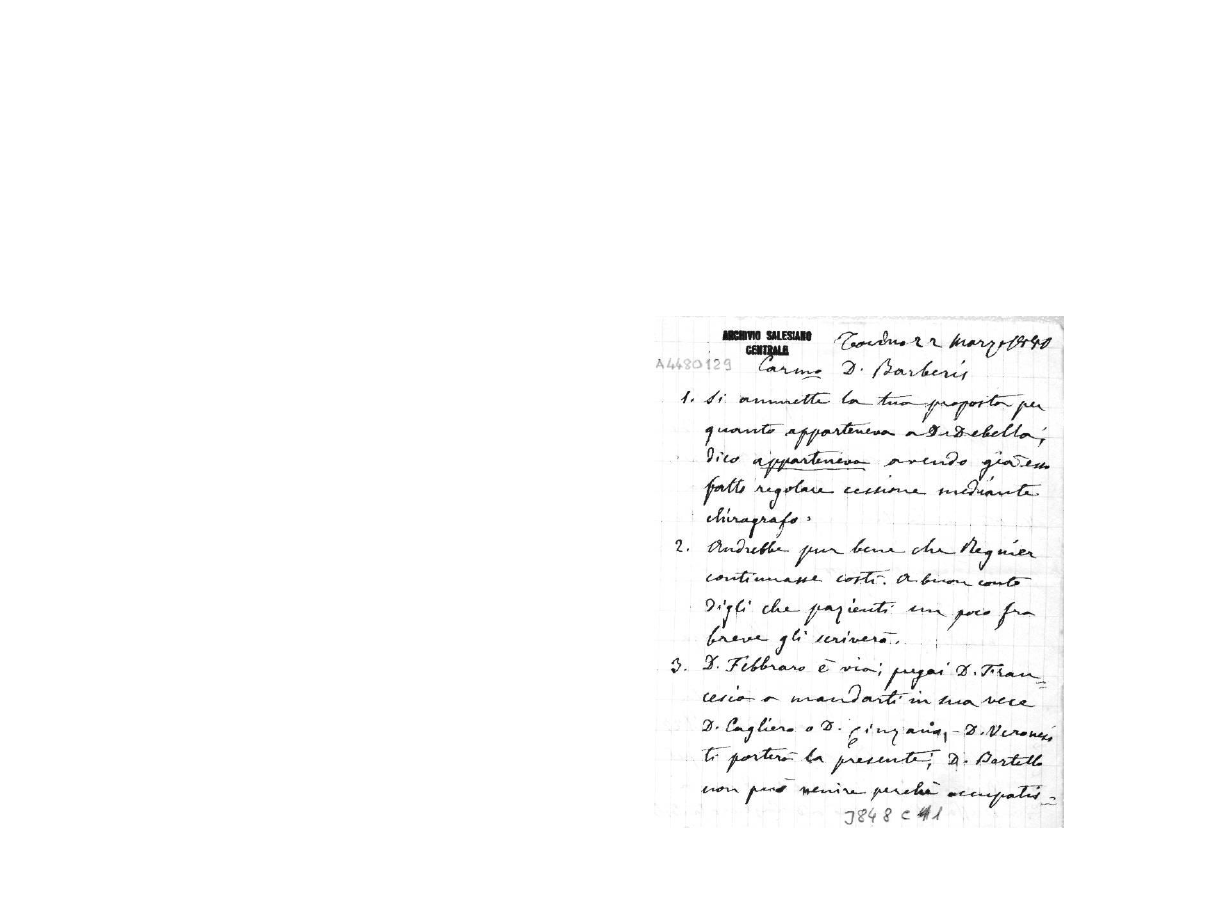 ARCHIVIO SALESIANO
CENTRALE
Torino 22 Marzo 1890
A4480129
Carmo D. Barberis
1. Si ammette la tua proposta per
quanto apparteneva a D. Debella;
dico apparteneva avendo già esso
fatto regolare cessione mediante
chirografo.
2. Andrebbe pur bene che Regnier
continuasse costì. A buon conto
digli che pazienti un poco fra
breve gli scriverò.
3. D. Febbraro è via; pregai D. Fran=
cesia a mandarti in sua vece
D. Cagliero o D. Cinzano, - D. Veronesi
ti porterà la presente; D. Bertello
non può venire perchè occupatis=
J848 C 41